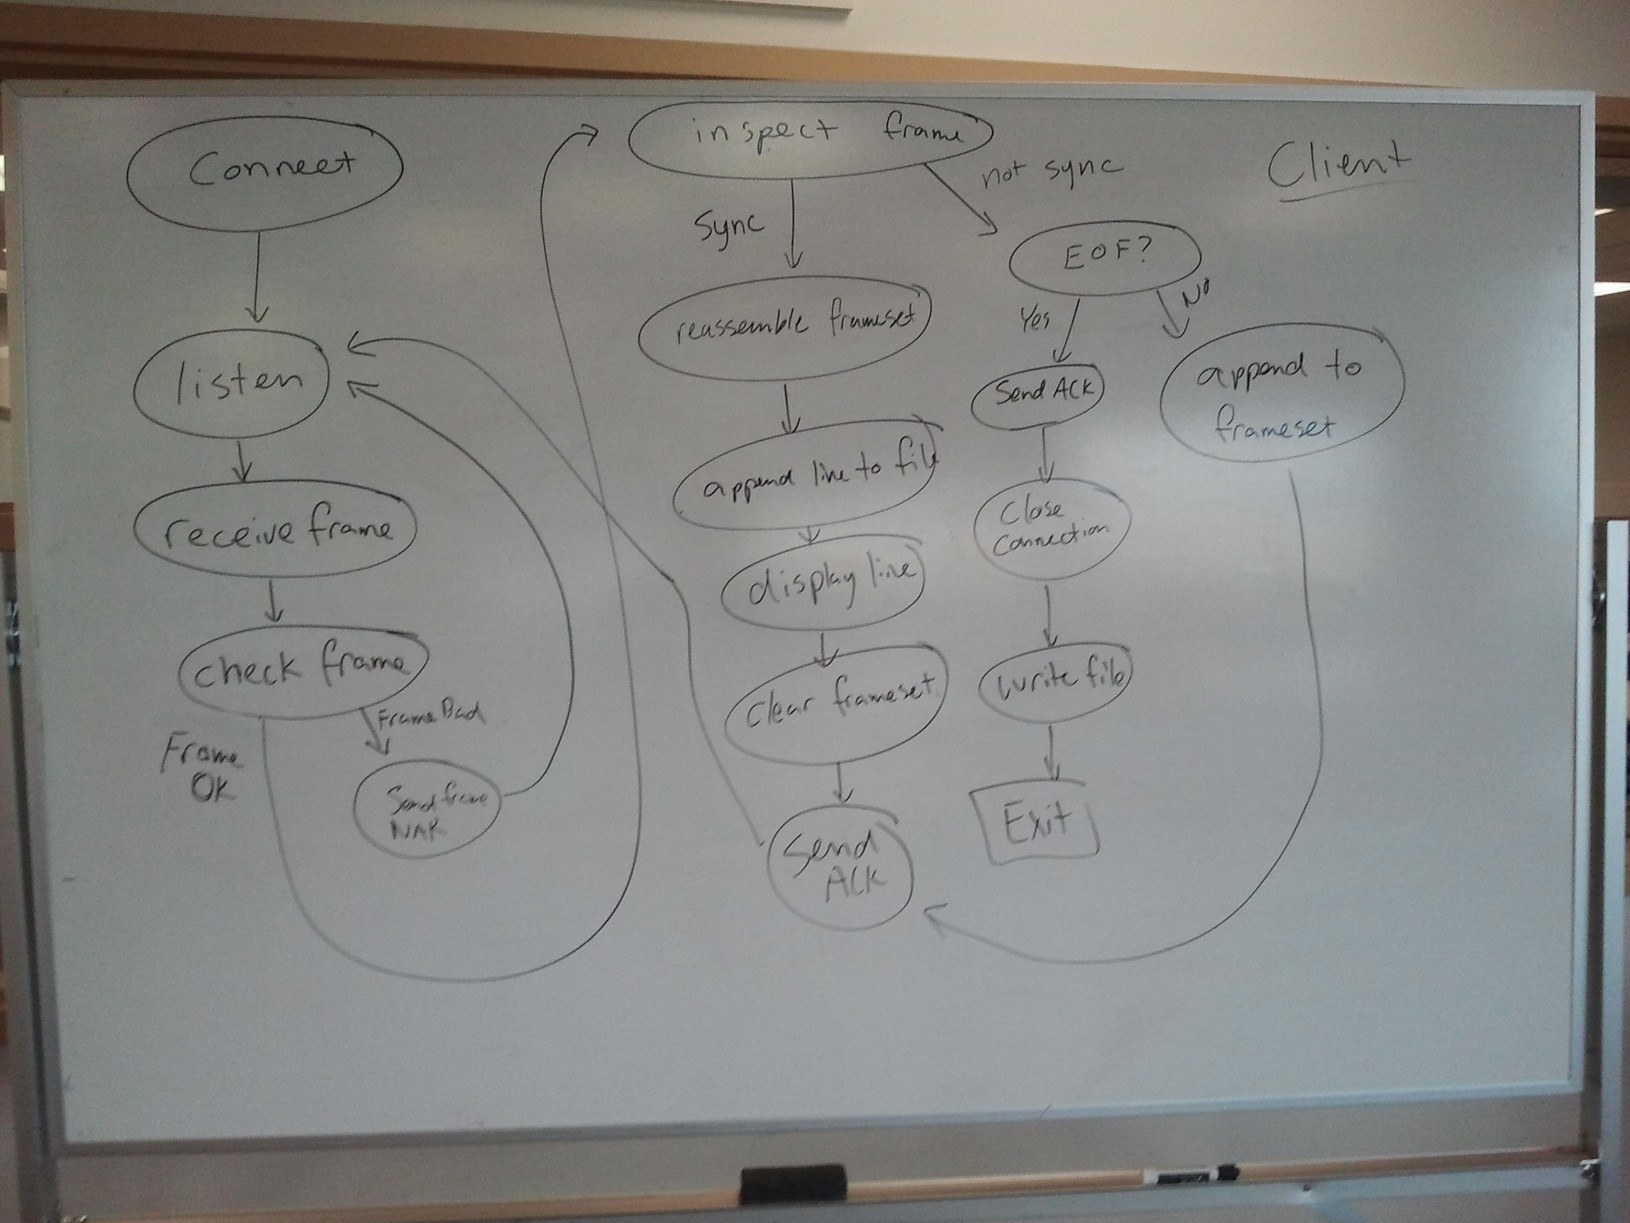 Connect
listen
receive frame
check frame
Frame Bad
Frame
OK
Send frame
NAK
inspect frame
Sync
not sync
reassemble frameset
append line to file
display line
clear frameset
Send
ACK
EOF?
Yes
No
Send ACK
Close
Connection
write file
Exit
append to
frameset
Client